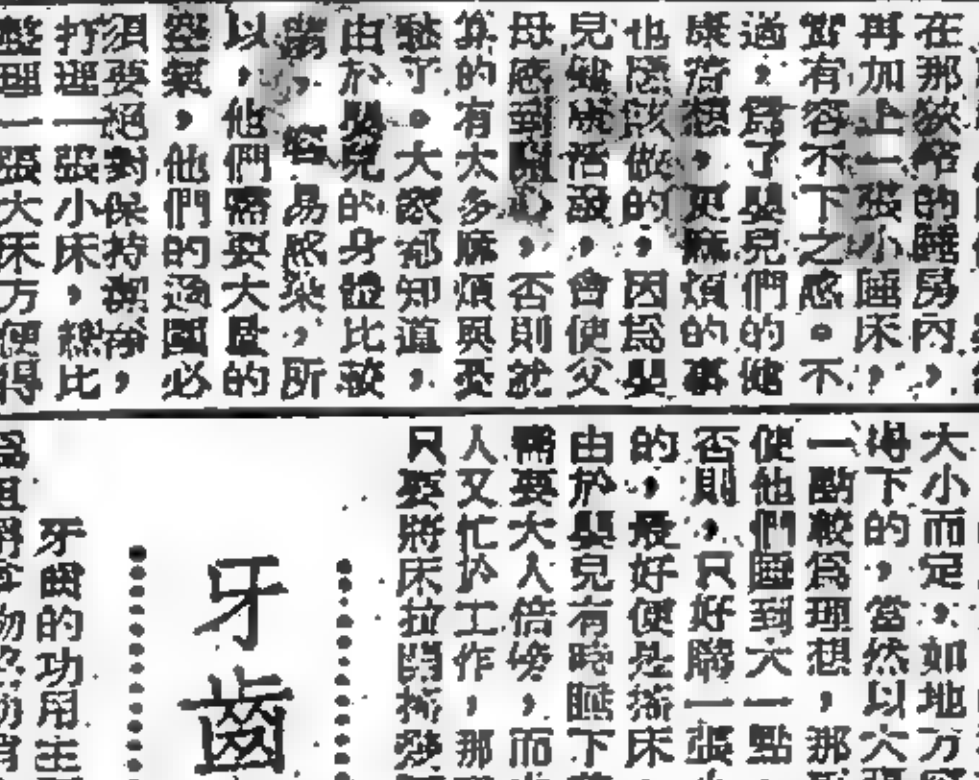 在那狹窄的睡房內，
再加上一張小睡床，
實有容不下之感。不
過，爲了嬰兒們的健
康着想，更麻煩的事
也應該做的，因爲嬰
兒健康活潑，會使父
母感到開心，否則就
算的有太多麻煩與憂
愁了。大家都知道，
由於嬰兒的身體比較
弱，容易感染，所
以，他們需要大量的
空氣，他們的週圍必
須要絕對保持潔淨，
打理一張小床，總比
整理一張大床方便得
大小而定，如地方
得下的，當然以大
一點較爲理想，那
使他們睡到大一點
否則，只好購一張
的，最好便是搖床
由於嬰兒有時睡下
需要大人倍伴，而
人又忙於工作，那
只要將床拉開搖
牙齒
牙齒的功用主